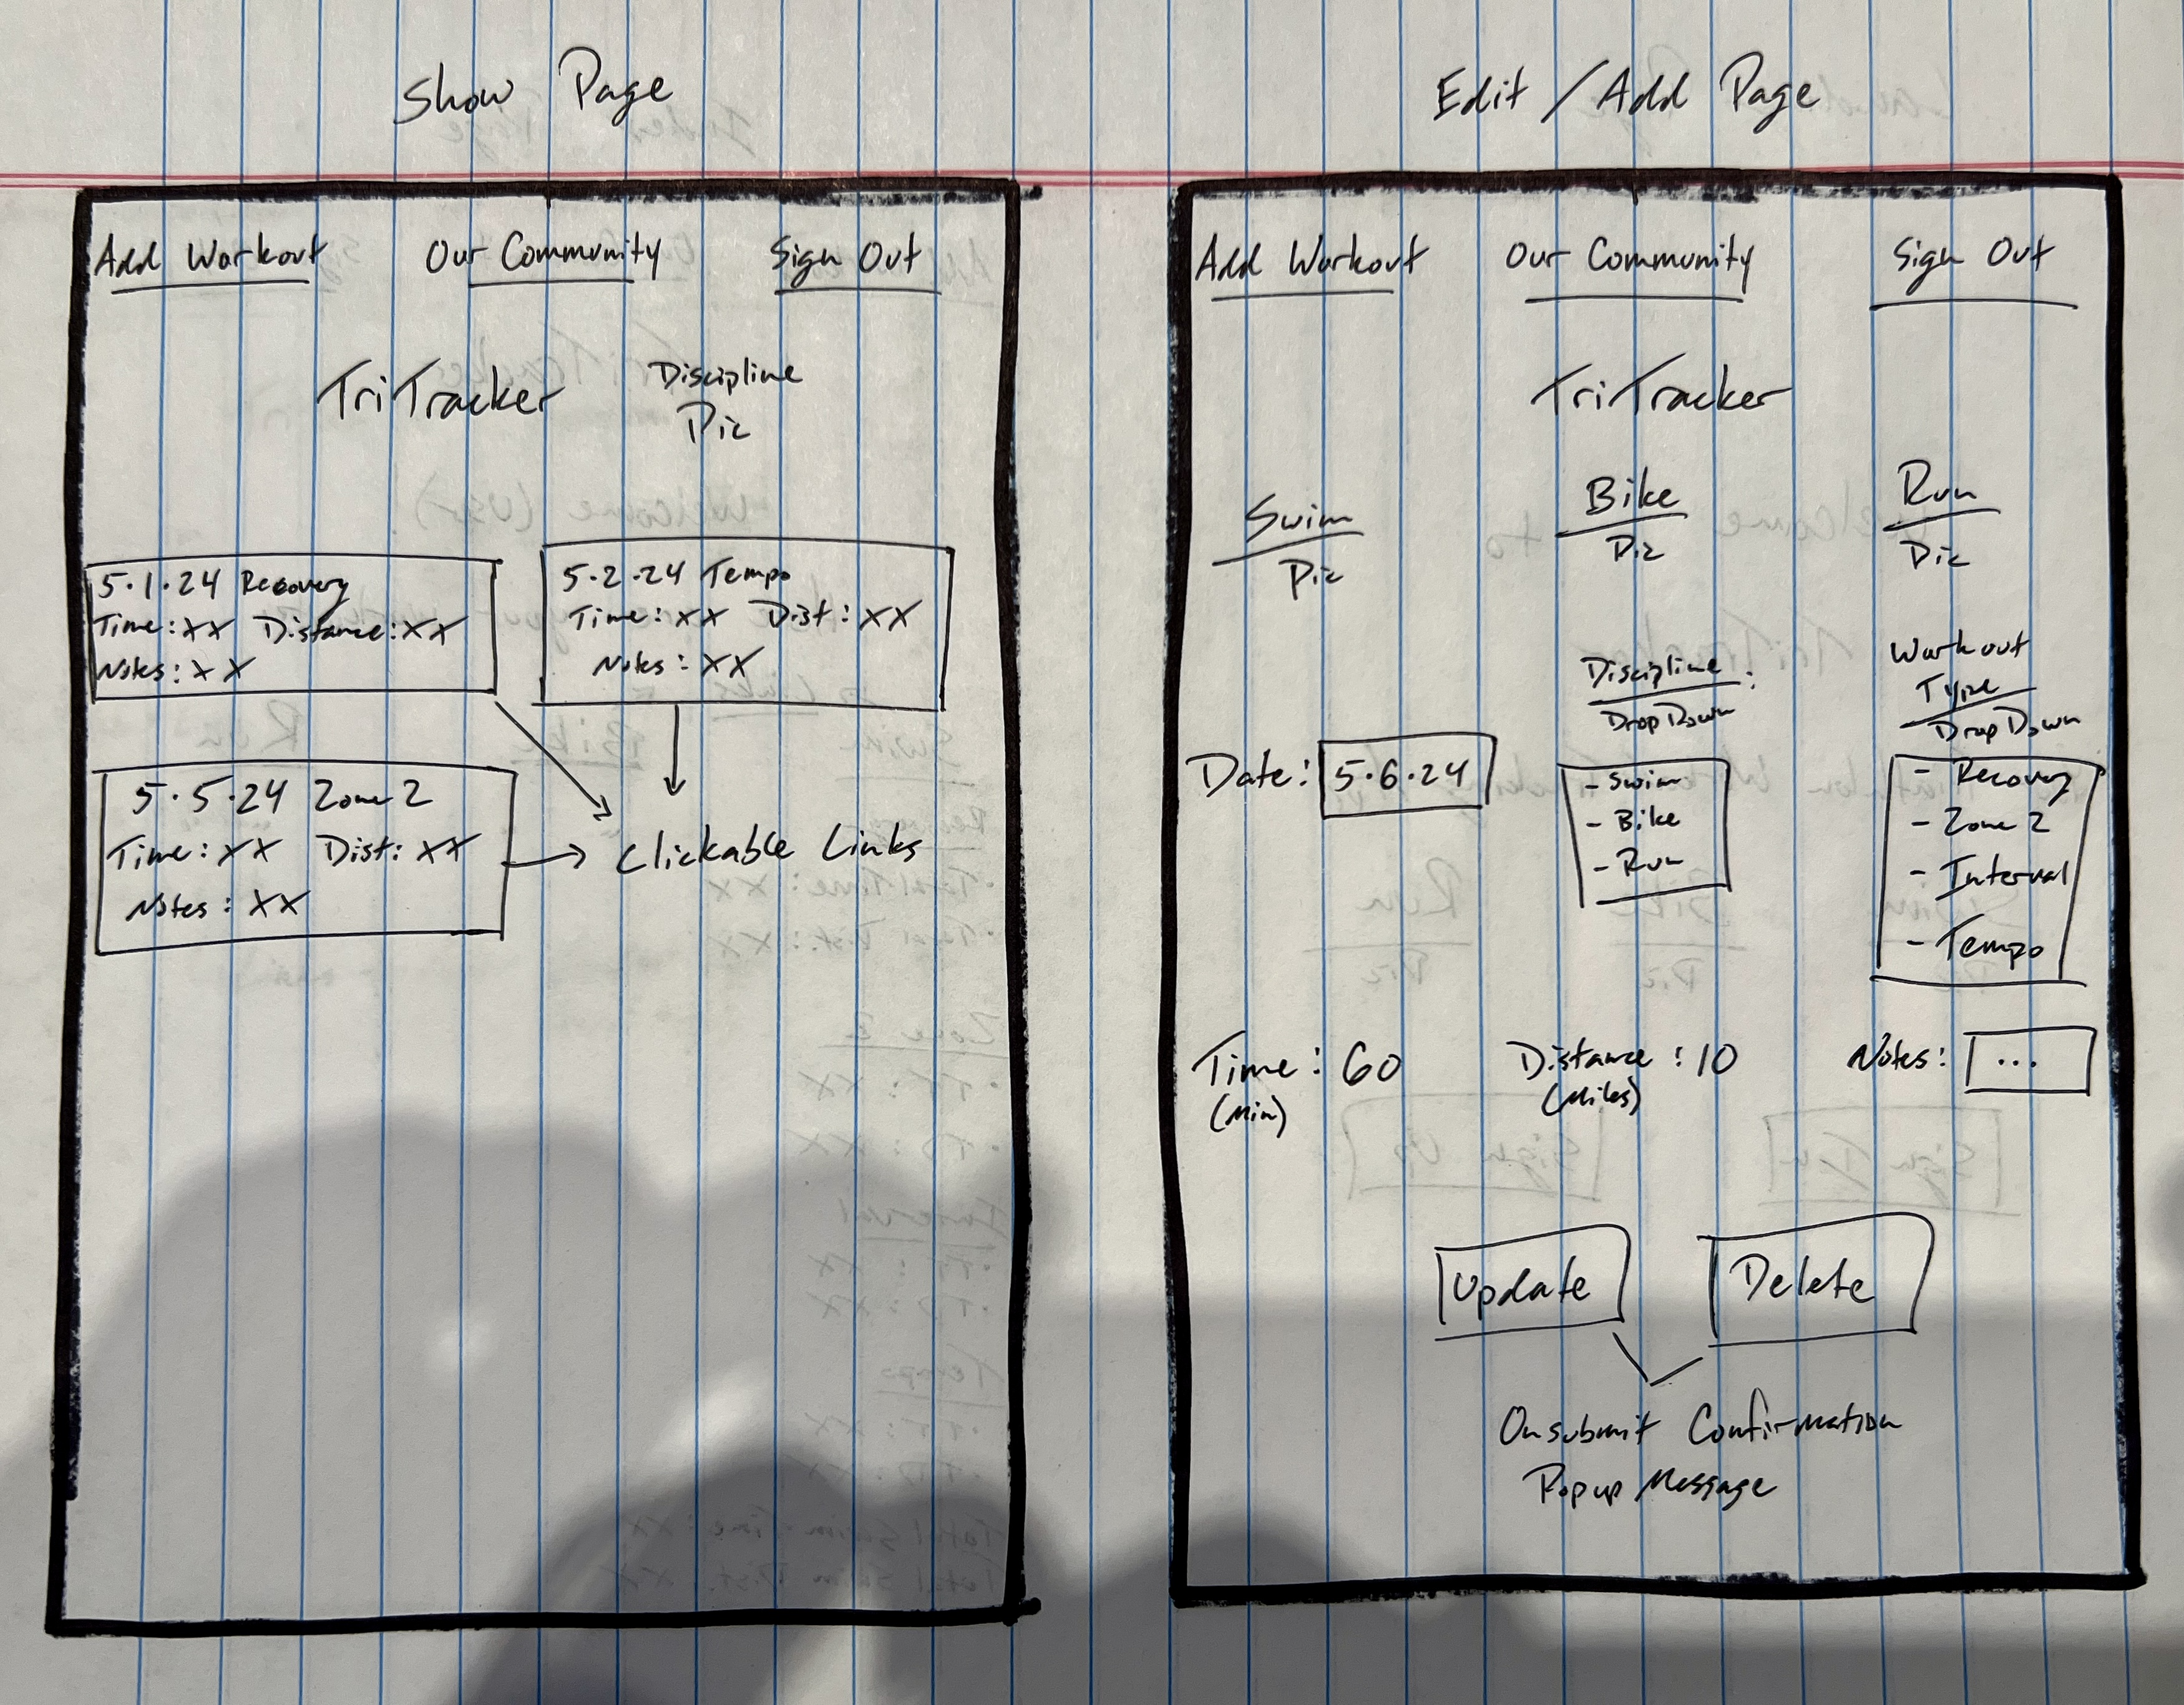 Show Page
Add Workout Our Community Sign Out
TriTracker Discipline
Pic
5.1.24 Recovery
Time: XX Distance: XX
Notes: XX
5.2.24 Tempo
Time: XX Dist: XX
Notes: XX
5.5.24 Zone 2
Time: XX Dist: XX
Notes: XX
Clickable Links
Edit / Add Page
Add Workout Our Community Sign Out
TriTracker
Swim
Pic
Bike
Pic
Run
Pic
Date: 5.6.24
Discipline:
DropDown
- Swim
- Bike
- Run
Workout
Type
DropDown
- Recovery
- Zone 2
- Interval
- Tempo
Time: 60
(Min)
Distance: 10
(Miles)
Notes: ...
Update Delete
Onsubmit Confirmation
Popup Message